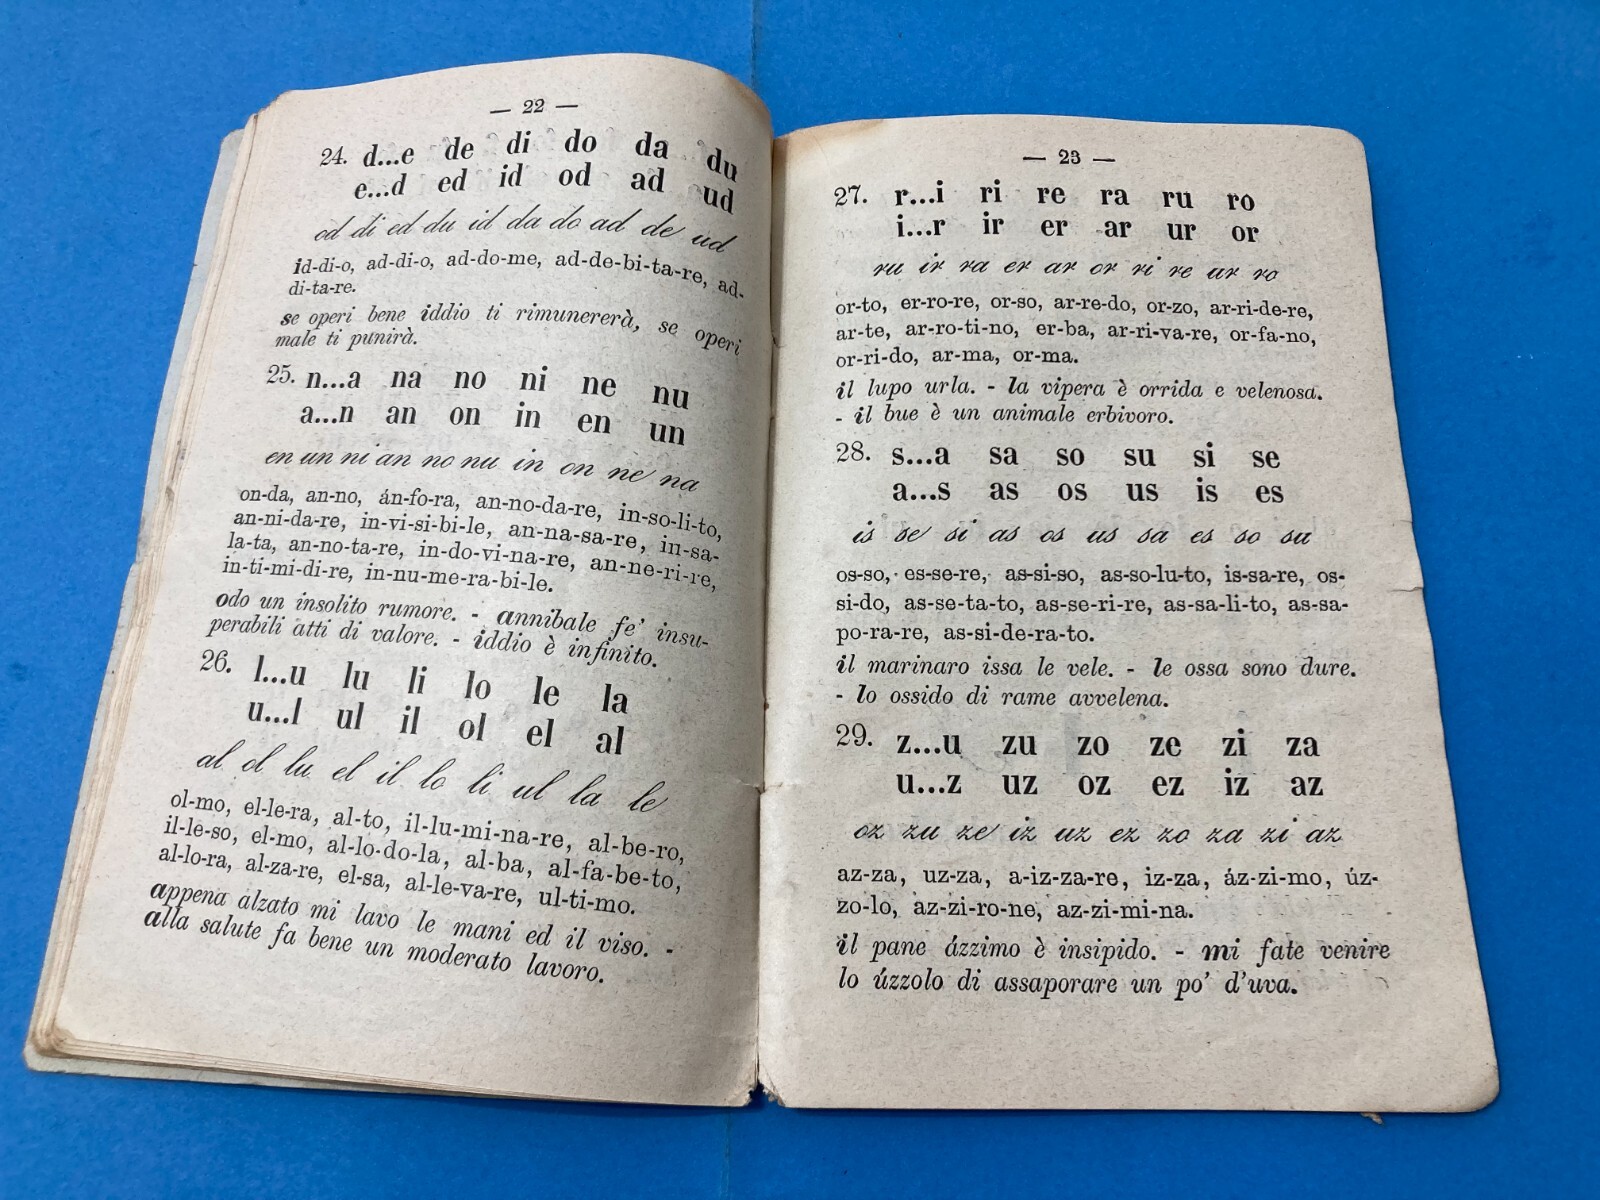 — 22 —
24. d...e de di do da du
e...d ed id od ad ud
od di ed du id da do ad de ud
id-di-o, ad-di-o, ad-do-me, ad-de-bi-ta-re, ad-
di-ta-re.
se operi bene iddio ti rimunererà, se operi
male ti punirà.
25. n...a na no ni ne nu
a...n an on in en un
en un ni an no nu in on ne na
on-da, an-no, án-fo-ra, an-no-da-re, in-so-li-to,
an-ni-da-re, in-vi-si-bi-le, an-na-sa-re, in-sa-
la-ta, an-no-ta-re, in-do-vi-na-re, an-ne-ri-re,
in-ti-mi-di-re, in-nu-me-ra-bi-le.
odo un insolito rumore. - annibale fe' insu-
perabili atti di valore. - iddio è infinito.
26. l...u lu li lo le la
u...l ul il ol el al
al ol lu el il lo li ul la le
ol-mo, el-le-ra, al-to, il-lu-mi-na-re, al-be-ro,
il-le-so, el-mo, al-lo-do-la, al-ba, al-fa-be-to,
al-lo-ra, al-za-re, el-sa, al-le-va-re, ul-ti-mo.
appena alzato mi lavo le mani ed il viso. -
alla salute fa bene un moderato lavoro.
— 23 —
27. r...i ri re ra ru ro
i...r ir er ar ur or
ru ir ra er ar or ri re ur ro
or-to, er-ro-re, or-so, ar-re-do, or-zo, ar-ri-de-re,
ar-te, ar-ro-ti-no, er-ba, ar-ri-va-re, or-fa-no,
or-ri-do, ar-ma, or-ma.
il lupo urla. - la vipera è orrida e velenosa.
- il bue è un animale erbivoro.
28. s...a sa so su si se
a...s as os us is es
is se si as os us sa es so su
os-so, es-se-re, as-si-so, as-so-lu-to, is-sa-re, os-
si-do, as-se-ta-to, as-se-ri-re, as-sa-li-to, as-sa-
po-ra-re, as-si-de-ra-to.
il marinaro issa le vele. - le ossa sono dure.
- lo ossido di rame avvelena.
29. z...u zu zo ze zi za
u...z uz oz ez iz az
oz zu ze iz uz ez zo za zi az
az-za, uz-za, a-iz-za-re, iz-za, áz-zi-mo, úz-
zo-lo, az-zi-ro-ne, az-zi-mi-na.
il pane ázzimo è insipido. - mi fate venire
lo úzzolo di assaporare un po' d'uva.